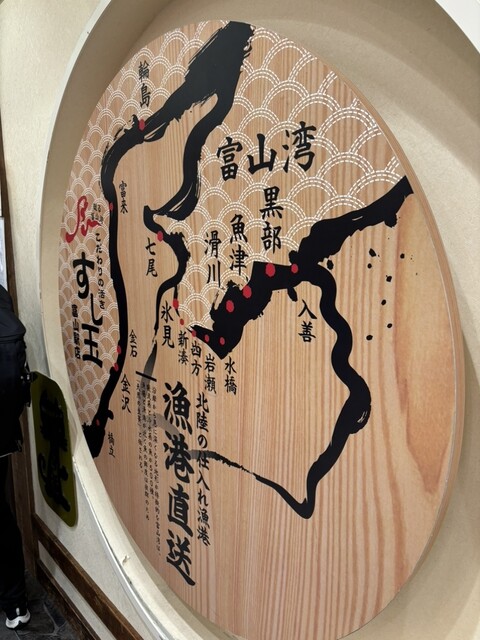 輪島
富来
富山湾
黒部
魚津
滑川
七尾
入善
氷見
新湊
四方
岩瀬
水橋
金石
金沢
橋立
こだわりの活き
すし玉
富山駅店
北陸の仕入れ漁港
漁港直送